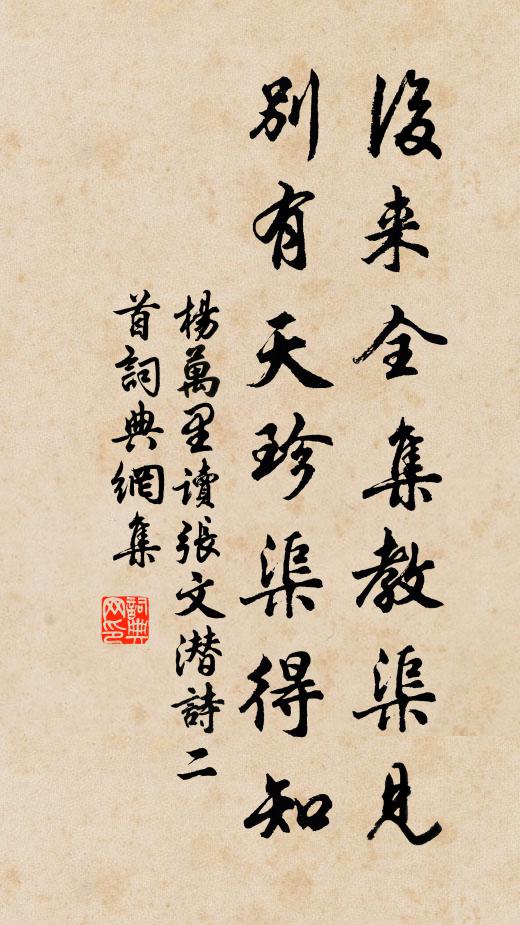 後来全集教渠見
別有天珍渠得知
楊萬里讀張文潜詩二
首詞典網集
詞典
网印